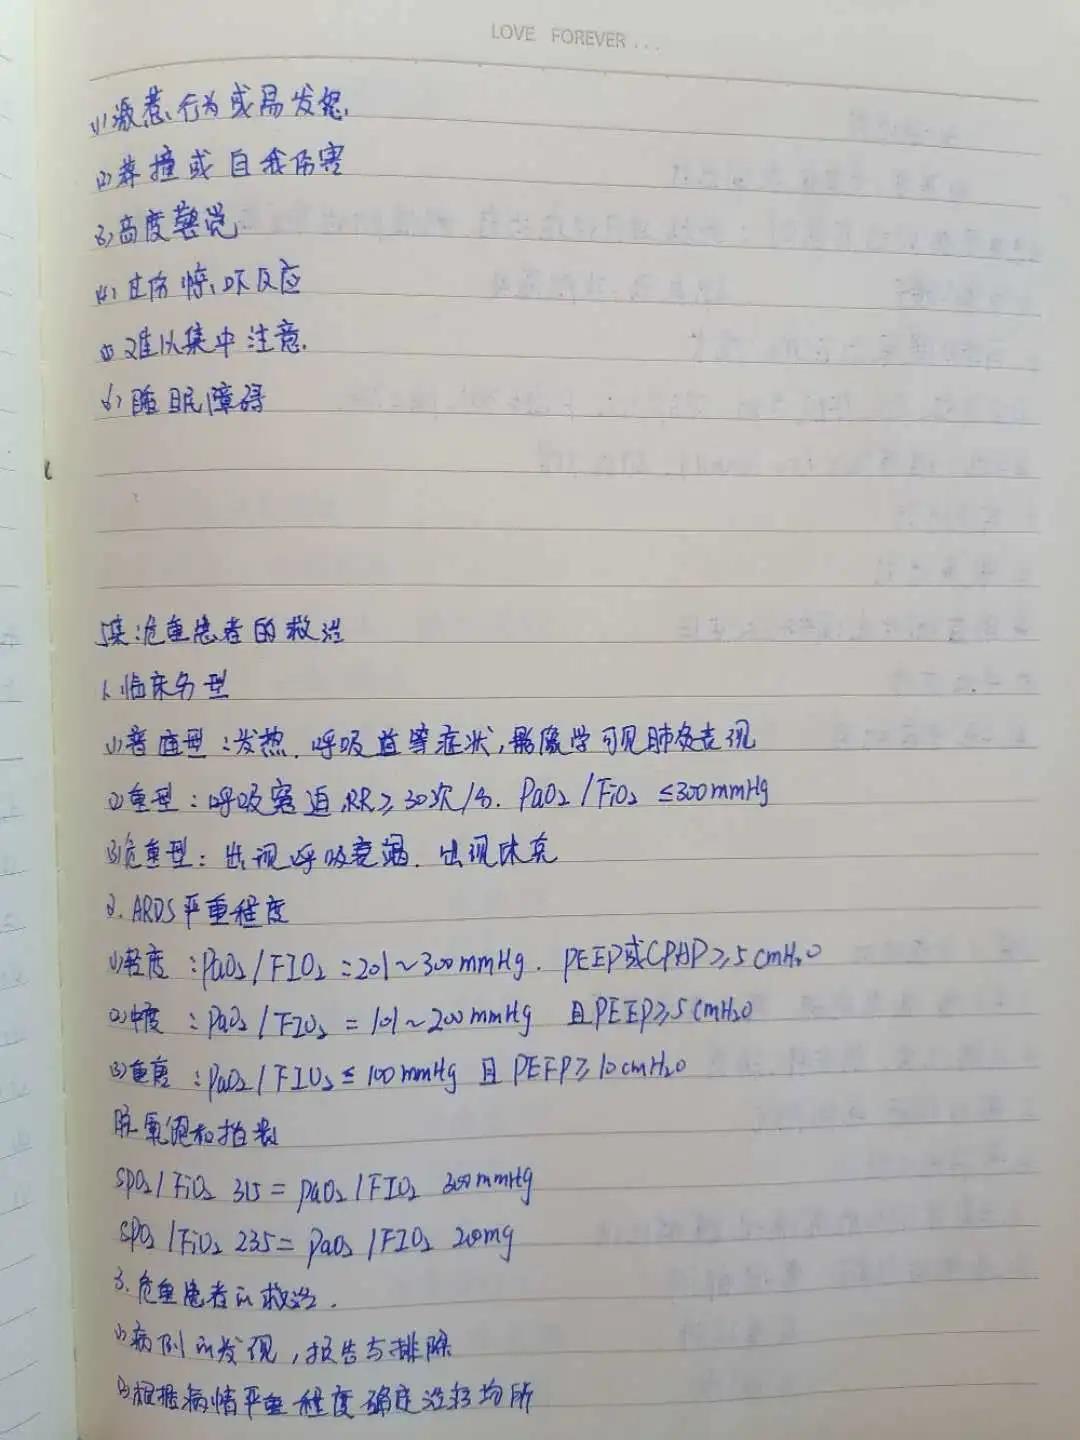 LOVE FOREVER ...
(1)激惹、行为或易发怒.
(2)莽撞或自我伤害
(3)高度警觉
(4)过份惊吓反应
(5)难以集中注意.
(6)睡眠障碍
5集:危重患者的救治
1.临床分型
(1)普通型:发热.呼吸道等症状,影像学可见肺炎表现
(2)重型:呼吸窘迫,RR≥30次/分. PaO₂/FiO₂ ≤300mmHg
(3)危重型:出现呼吸衰竭.出现休克
2.ARDS严重程度
(1)轻度:PaO₂/FIO₂=201~300mmHg. PEEP或CPAP≥5cmH₂O
(2)中度:PaO₂/FIO₂=101~200mmHg 且PEEP≥5cmH₂O
(3)重度:PaO₂/FIO₂≤100mmHg 且PEEP≥10cmH₂O
脉氧饱和指数
SPO₂/FiO₂ 315=PaO₂/FIO₂ 300mmHg
SPO₂/FiO₂ 235=PaO₂/FIO₂ 200mg
3.危重患者的救治.
(1)病例的发现,报告与排除
(2)根据病情严重程度确定治疗场所